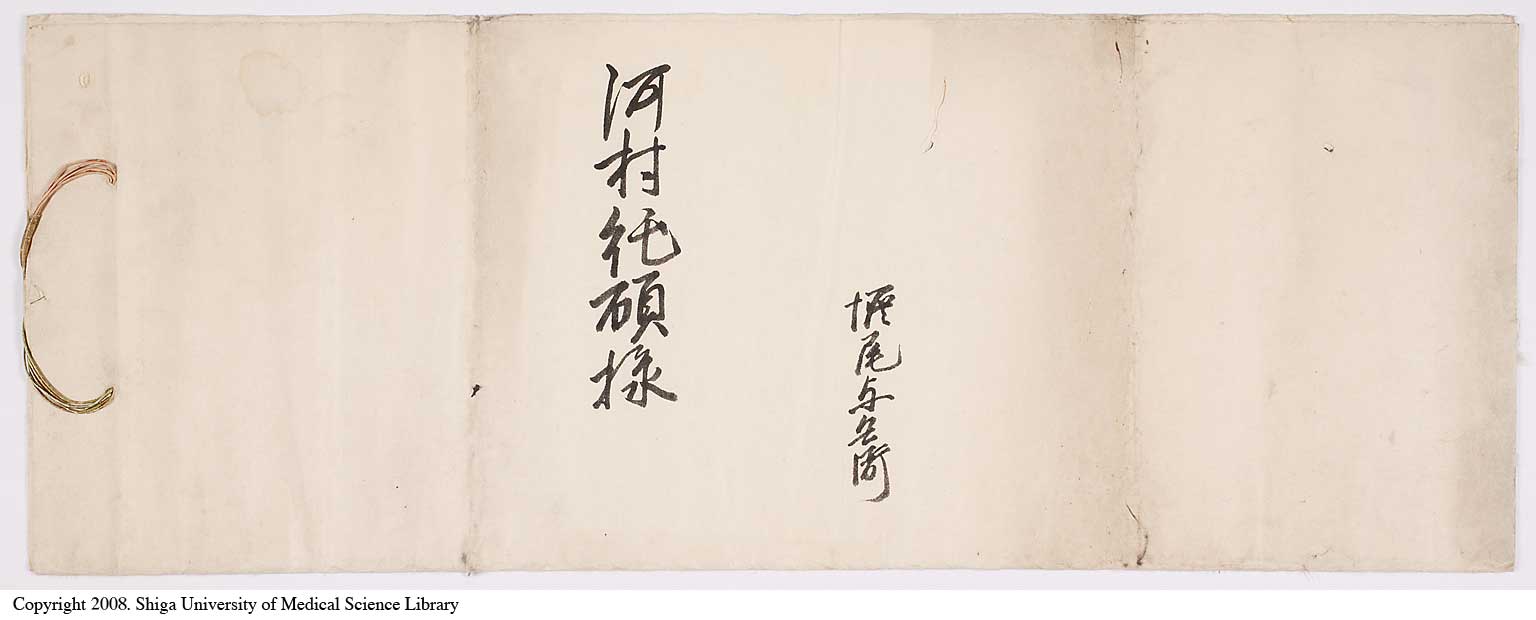 堀尾与兵衛
河村純碩様
Copyright 2008. Shiga University of Medical Science Library